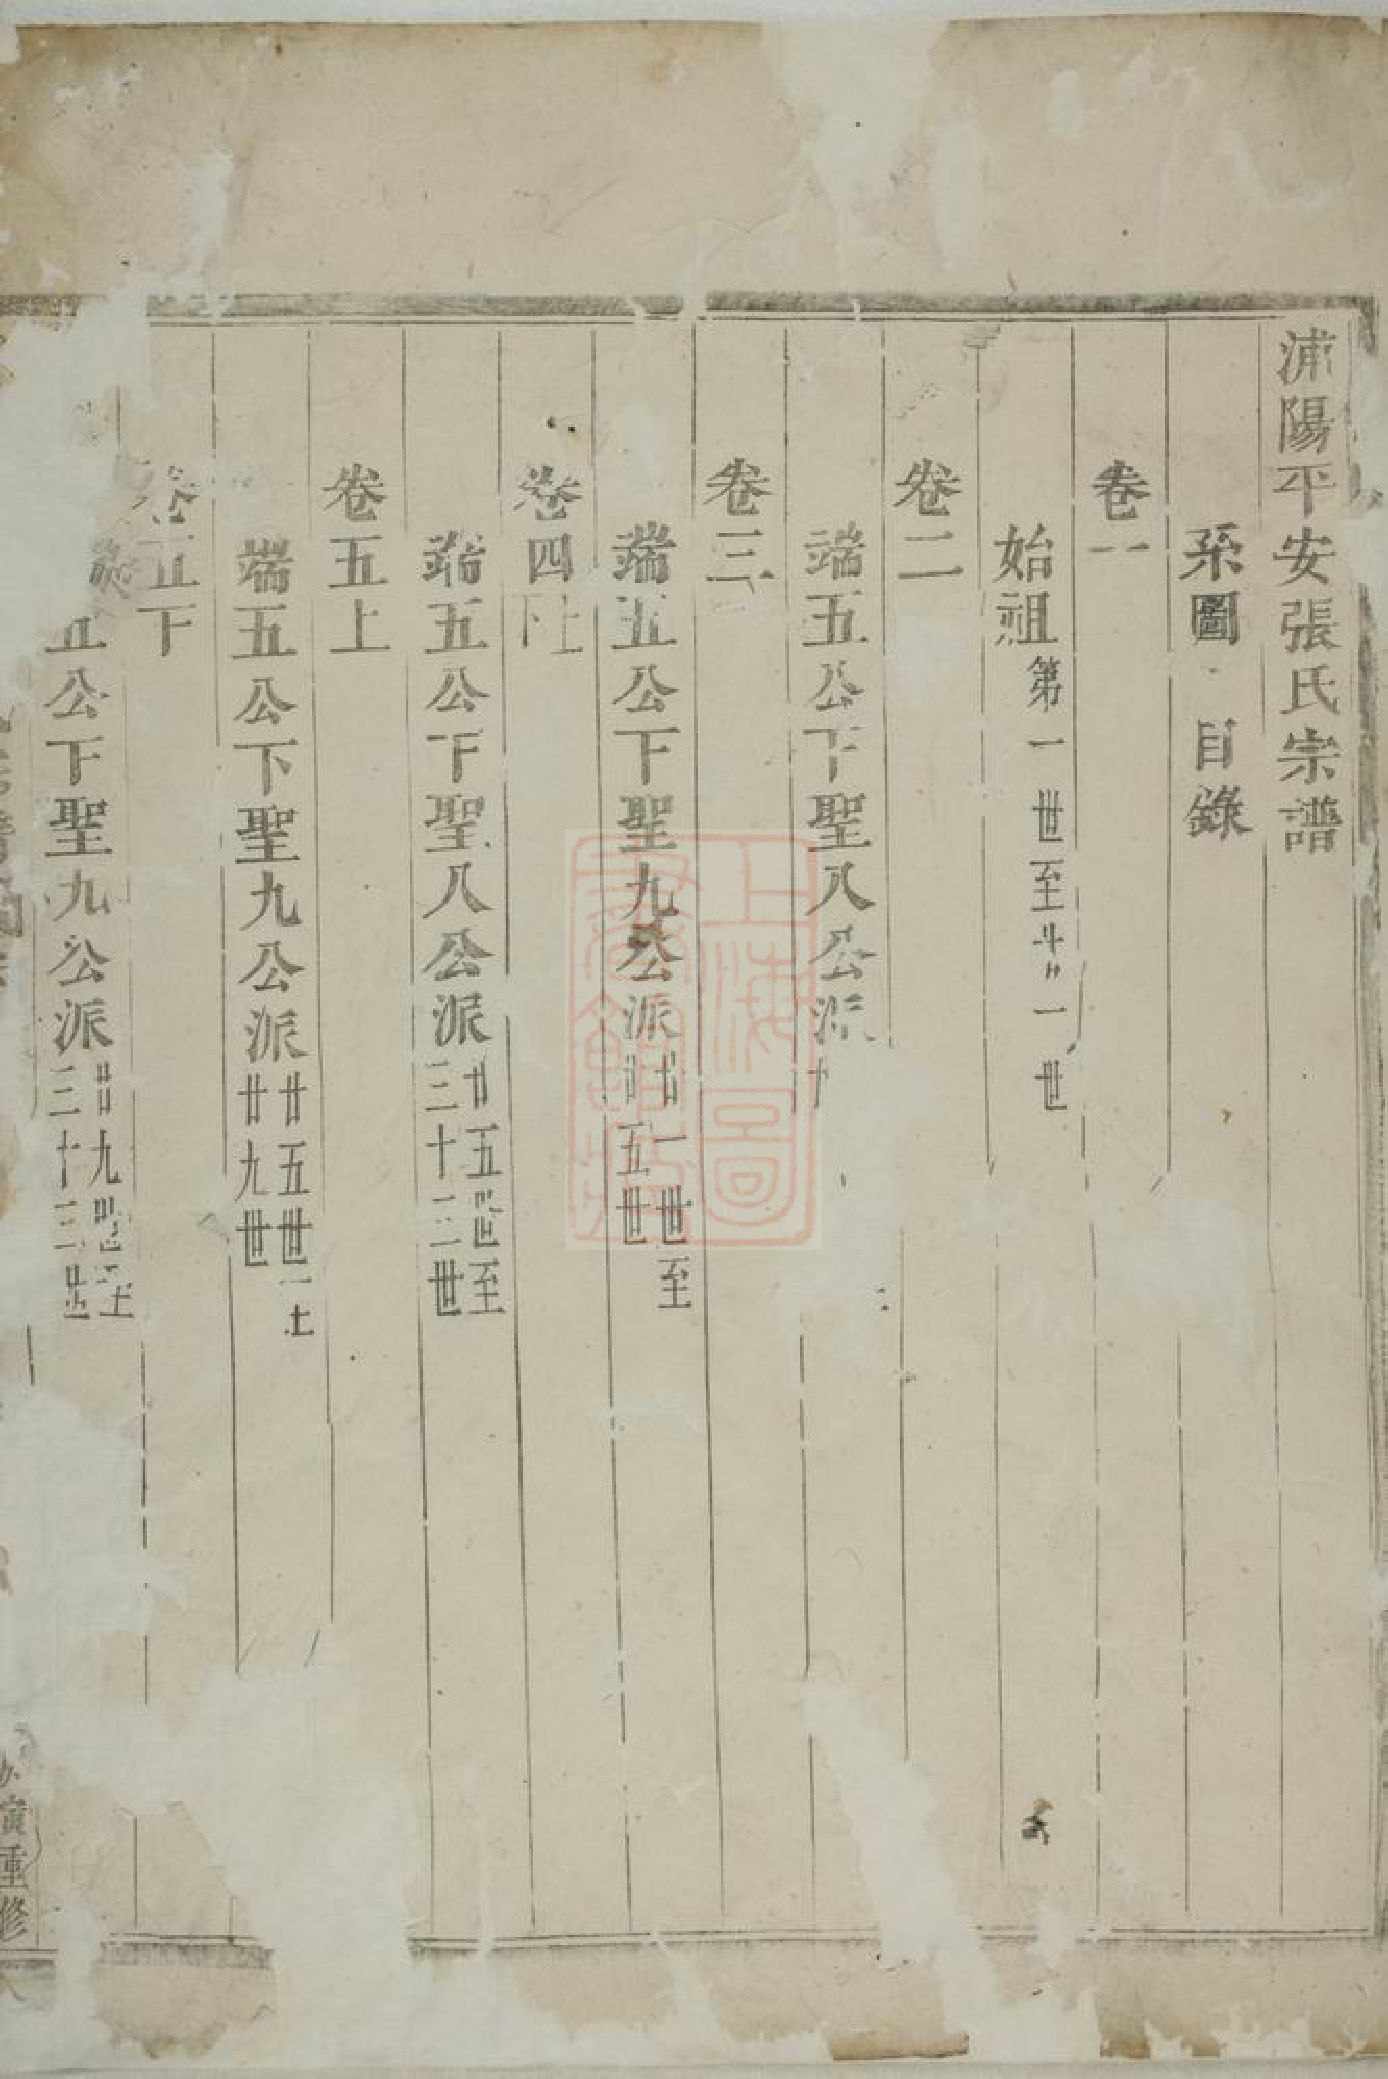 浦陽平安張氏宗譜
系圖目錄
卷一
始祖第一世至廿一世
卷二
端五公下聖八公派
卷三
端五公下聖九公派廿一世至
廿五世
卷四上下
端五公下聖八公派廿五世至
三十三世
卷五上
端五公下聖九公派廿五世至
廿九世
卷五下
五公下聖九公派廿九世至
三十三世
寅重修
上海圖書館藏